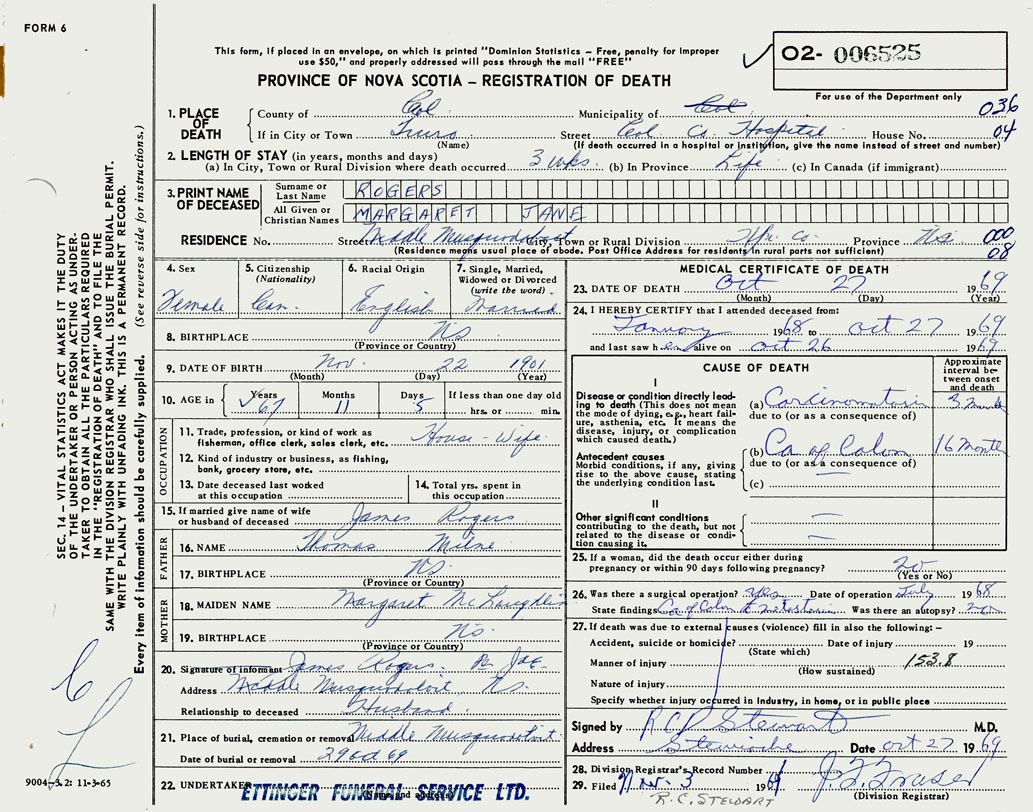 FORM 6
This form, if placed in an envelope, on which is printed "Dominion Statistics – Free, penalty for improper
use $50," and properly addressed will pass through the mail "FREE"
PROVINCE OF NOVA SCOTIA – REGISTRATION OF DEATH
O2- 006525
For use of the Department only
1. PLACE OF DEATH
County of Col Municipality of Col 036
If in City or Town Truro Street Col Co. Hospital House No. 04
(Name) (If death occurred in a hospital or institution, give the name instead of street and number)
2. LENGTH OF STAY (in years, months and days)
(a) In City, Town or Rural Division where death occurred 3 wks. (b) In Province Life (c) In Canada (if immigrant)
3. PRINT NAME OF DECEASED
Surname or Last Name ROGERS
All Given or Christian Names MARGARET JANE
RESIDENCE No. Street Middle Musquodoboit City, Town or Rural Division Hfx. Co. Province N.S. 000
(Residence means usual place of abode. Post Office Address for residents in rural parts not sufficient) 08
4. Sex Female
5. Citizenship (Nationality) Can.
6. Racial Origin English
7. Single, Married, Widowed or Divorced (write the word) Married
8. BIRTHPLACE NS
(Province or Country)
9. DATE OF BIRTH Nov. 22 1901
(Month) (Day) (Year)
10. AGE in Years 67 Months 11 Days 5 If less than one day old
hrs. or min.
OCCUPATION
11. Trade, profession, or kind of work as
fisherman, office clerk, sales clerk, etc. House-Wife
12. Kind of industry or business, as fishing,
bank, grocery store, etc.
13. Date deceased last worked
at this occupation
14. Total yrs. spent in
this occupation
15. If married give name of wife
or husband of deceased James Rogers
FATHER
16. NAME Thomas Milne
17. BIRTHPLACE NS.
(Province or Country)
MOTHER
18. MAIDEN NAME Margaret McLaughlin
19. BIRTHPLACE NS.
(Province or Country)
20. Signature of informant James Rogers
Address Middle Musquodoboit NS.
Relationship to deceased Husband
21. Place of burial, cremation or removal Middle Musquodoboit
Date of burial or removal 29 Oct 69
22. UNDERTAKER ETTINGER FUNERAL SERVICE LTD.
(Name and address)
MEDICAL CERTIFICATE OF DEATH
23. DATE OF DEATH Oct 27 1969
(Month) (Day) (Year)
24. I HEREBY CERTIFY that I attended deceased from:
January 1968 to Oct 27 1969
and last saw her alive on Oct 26 1969
CAUSE OF DEATH
Approximate interval between onset and death
I
Disease or condition directly leading to death (This does not mean the mode of dying, e.g., heart failure, asthenia, etc. It means the disease, injury, or complication which caused death.)
(a) Carcinomatosis
due to (or as a consequence of)
Antecedent causes
Morbid conditions, if any, giving rise to the above cause, stating the underlying condition last.
(b) Ca of Colon 16 Months
due to (or as a consequence of)
(c)
II
Other significant conditions
contributing to the death, but not related to the disease or condition causing it.
25. If a woman, did the death occur either during
pregnancy or within 90 days following pregnancy? no
(Yes or No)
26. Was there a surgical operation? Yes Date of operation July 1968
State findings Ca of Colon Was there an autopsy? no
27. If death was due to external causes (violence) fill in also the following: –
Accident, suicide or homicide? Date of injury 19
(State which)
Manner of injury 153.8
(How sustained)
Nature of injury
Specify whether injury occurred in industry, in home, or in public place
Signed by R C Stewart M.D.
Address Stewiacke Date Oct 27 1969
28. Division Registrar's Record Number
29. Filed Nov. 3 1969
(Division Registrar)
R.C. STEWART
SEC. 14 – VITAL STATISTICS ACT MAKES IT THE DUTY
OF THE UNDERTAKER OR PERSON ACTING AS UNDER-
TAKER TO OBTAIN ALL THE PARTICULARS REQUIRED
IN THE "REGISTRATION OF DEATH" AND TO FILE THE
SAME WITH THE DIVISION REGISTRAR WHO SHALL ISSUE THE BURIAL PERMIT.
WRITE PLAINLY WITH UNFADING INK. THIS IS A PERMANENT RECORD.
Every item of information should be carefully supplied. (See reverse side for instructions.)
9004-3.2: 11-3-65